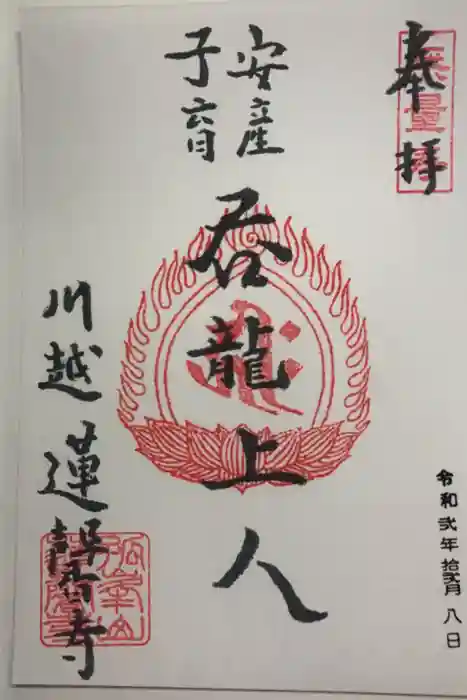 奉拝
安産
子育
呑龍上人
川越 蓮馨寺
令和弐年拾弐月八日